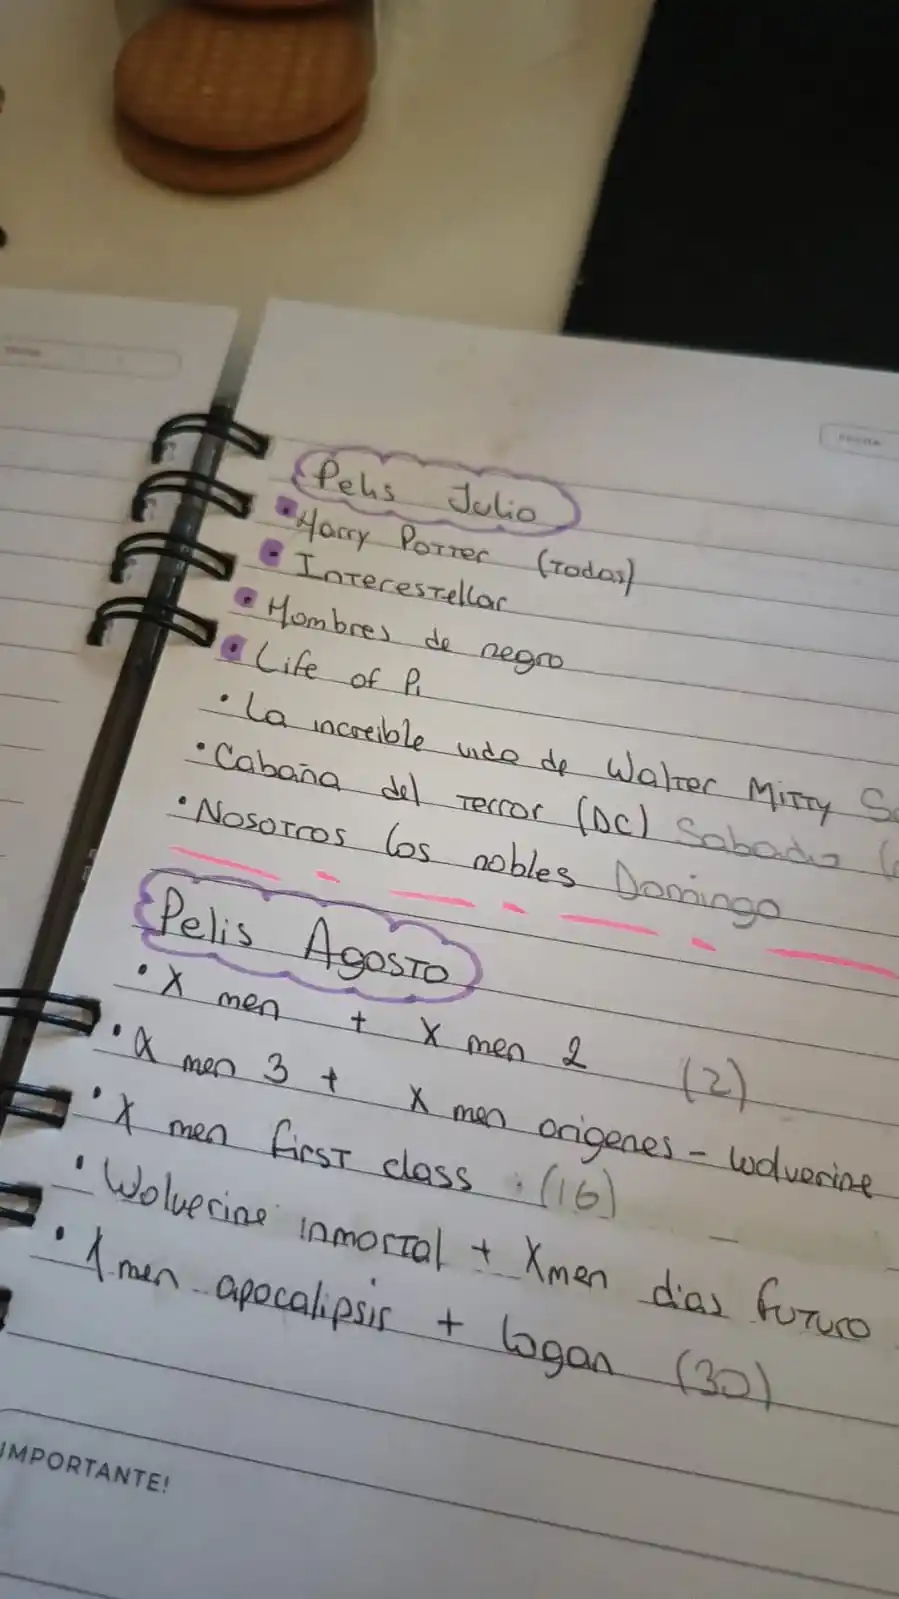 FECHA
Pelis Julio
• Harry Potter (Todas)
• Interestellar
• Hombres de negro
• Life of Pi
• La increible vida de Walter Mitty
• Cabaña del terror (DC) Sabado
• Nosotros los nobles Domingo
Pelis Agosto
• X men + X men 2 (2)
• X men 3 + X men origenes - Wolverine
• X men first class . (16)
• Wolverine inmortal + X men dias futuro
• X men apocalipsis + Logan (30)
IMPORTANTE!